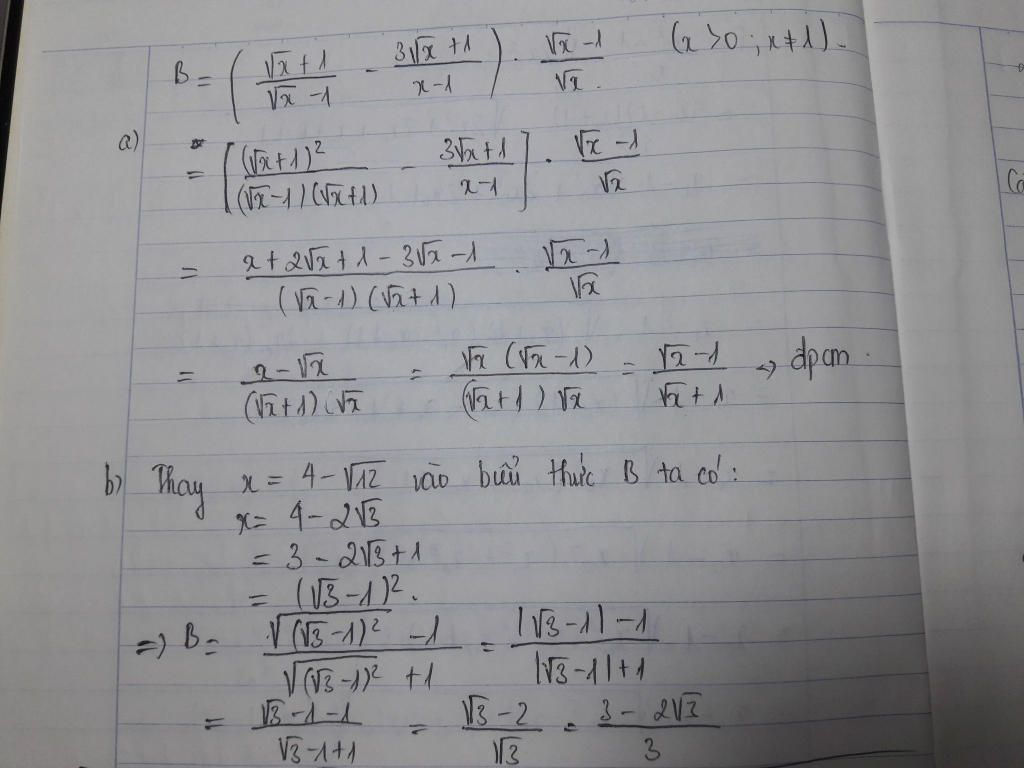 B = ( (√x + 1)/(√x - 1) - (3√x + 1)/(x - 1) ) · (√x - 1)/√x. (x > 0 ; x ≠ 1) -
a) = [ (√x+1)²/((√x-1)(√x+1)) - (3√x+1)/(x-1) ] · (√x - 1)/√x
= (x + 2√x + 1 - 3√x - 1)/((√x - 1)(√x + 1)) · (√x - 1)/√x
= (x - √x)/((√x+1)(√x) = (√x (√x - 1))/((√x+1) √x) = (√x - 1)/(√x + 1) → đpcm.
b) Thay x = 4 - √12 vào biểu thức B ta có :
x = 4 - 2√3
= 3 - 2√3 + 1
= (√3 - 1)².
=> B = (√(√3-1)² - 1)/(√(√3-1)² + 1) = (|√3 - 1| - 1)/(|√3 - 1| + 1)
= (√3 - 1 - 1)/(√3 - 1 + 1) = (√3 - 2)/√3 = (3 - 2√3)/3